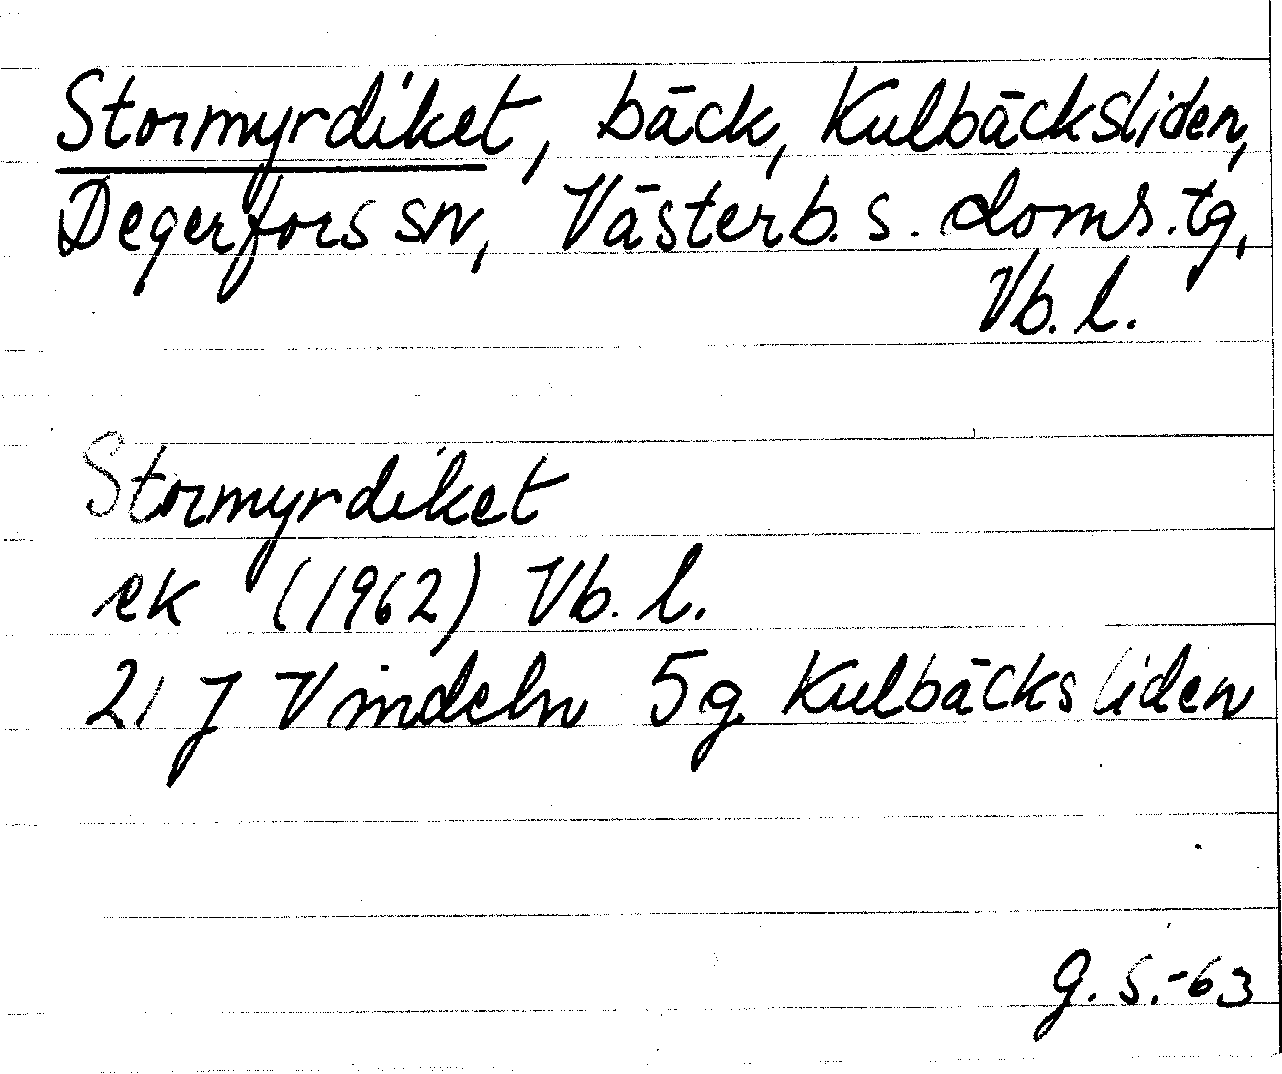 Stormyrdiket, bäck, Kulbäcksliden,
Degerfors sn, Västerb. s. doms. tg,
Vb. l.
Stormyrdiket
ek (1962) Vb. l.
21 J Vindeln 5g Kulbäcksliden
g. s. -63